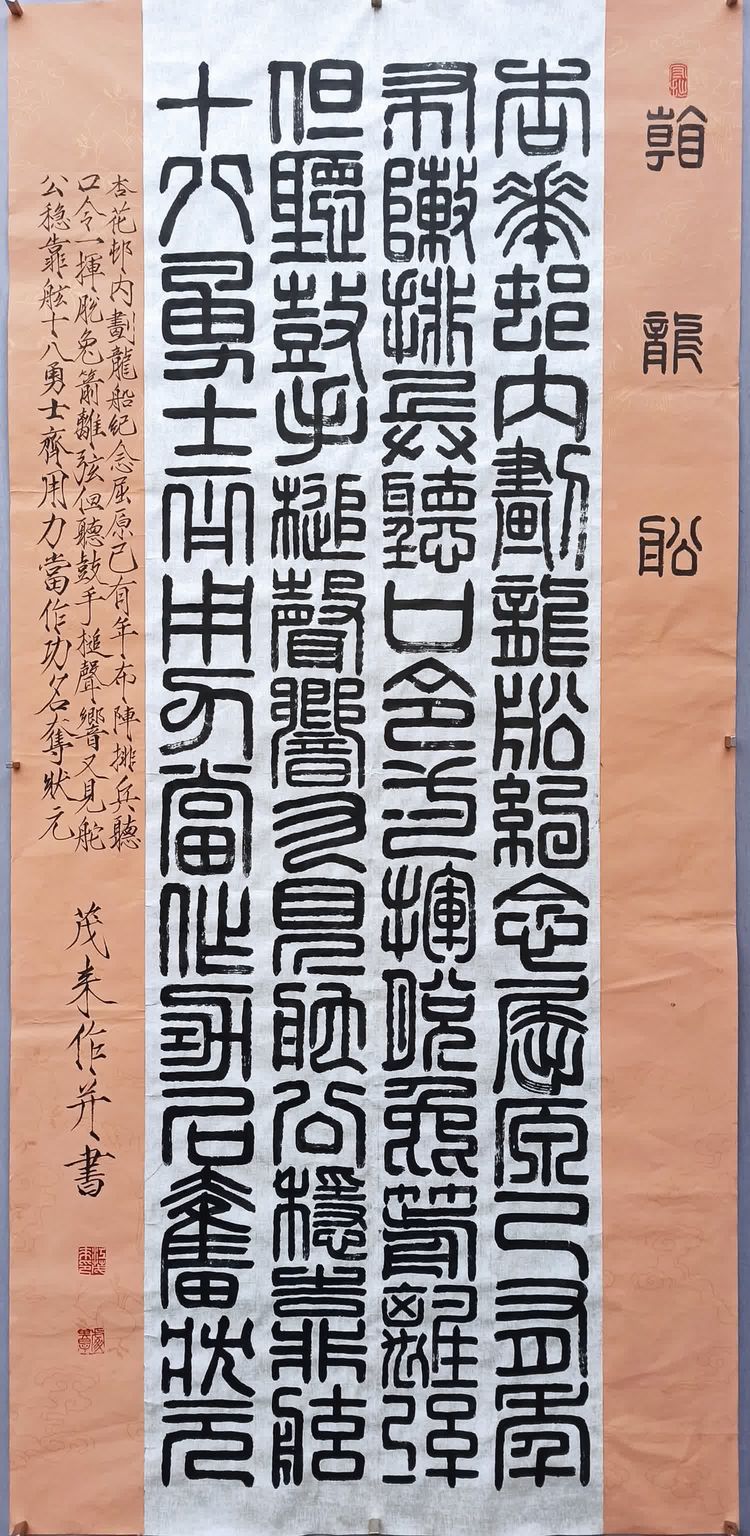 龍船
杏花邨内劃龍船紀念屈原已有年
布陣排兵聽口令一揮脫兔箭離弦
但聽鼓手槌聲響又見舵公穩靠舷
十八勇士齊用力當作功名奪狀元
杏花邨内劃龍船紀念屈原已有年布陣排兵聽
口令一揮脫兔箭離弦但聽鼓手槌聲響又見舵
公稳靠舷十八勇士齊用力當作功名奪狀元
茂来作并書